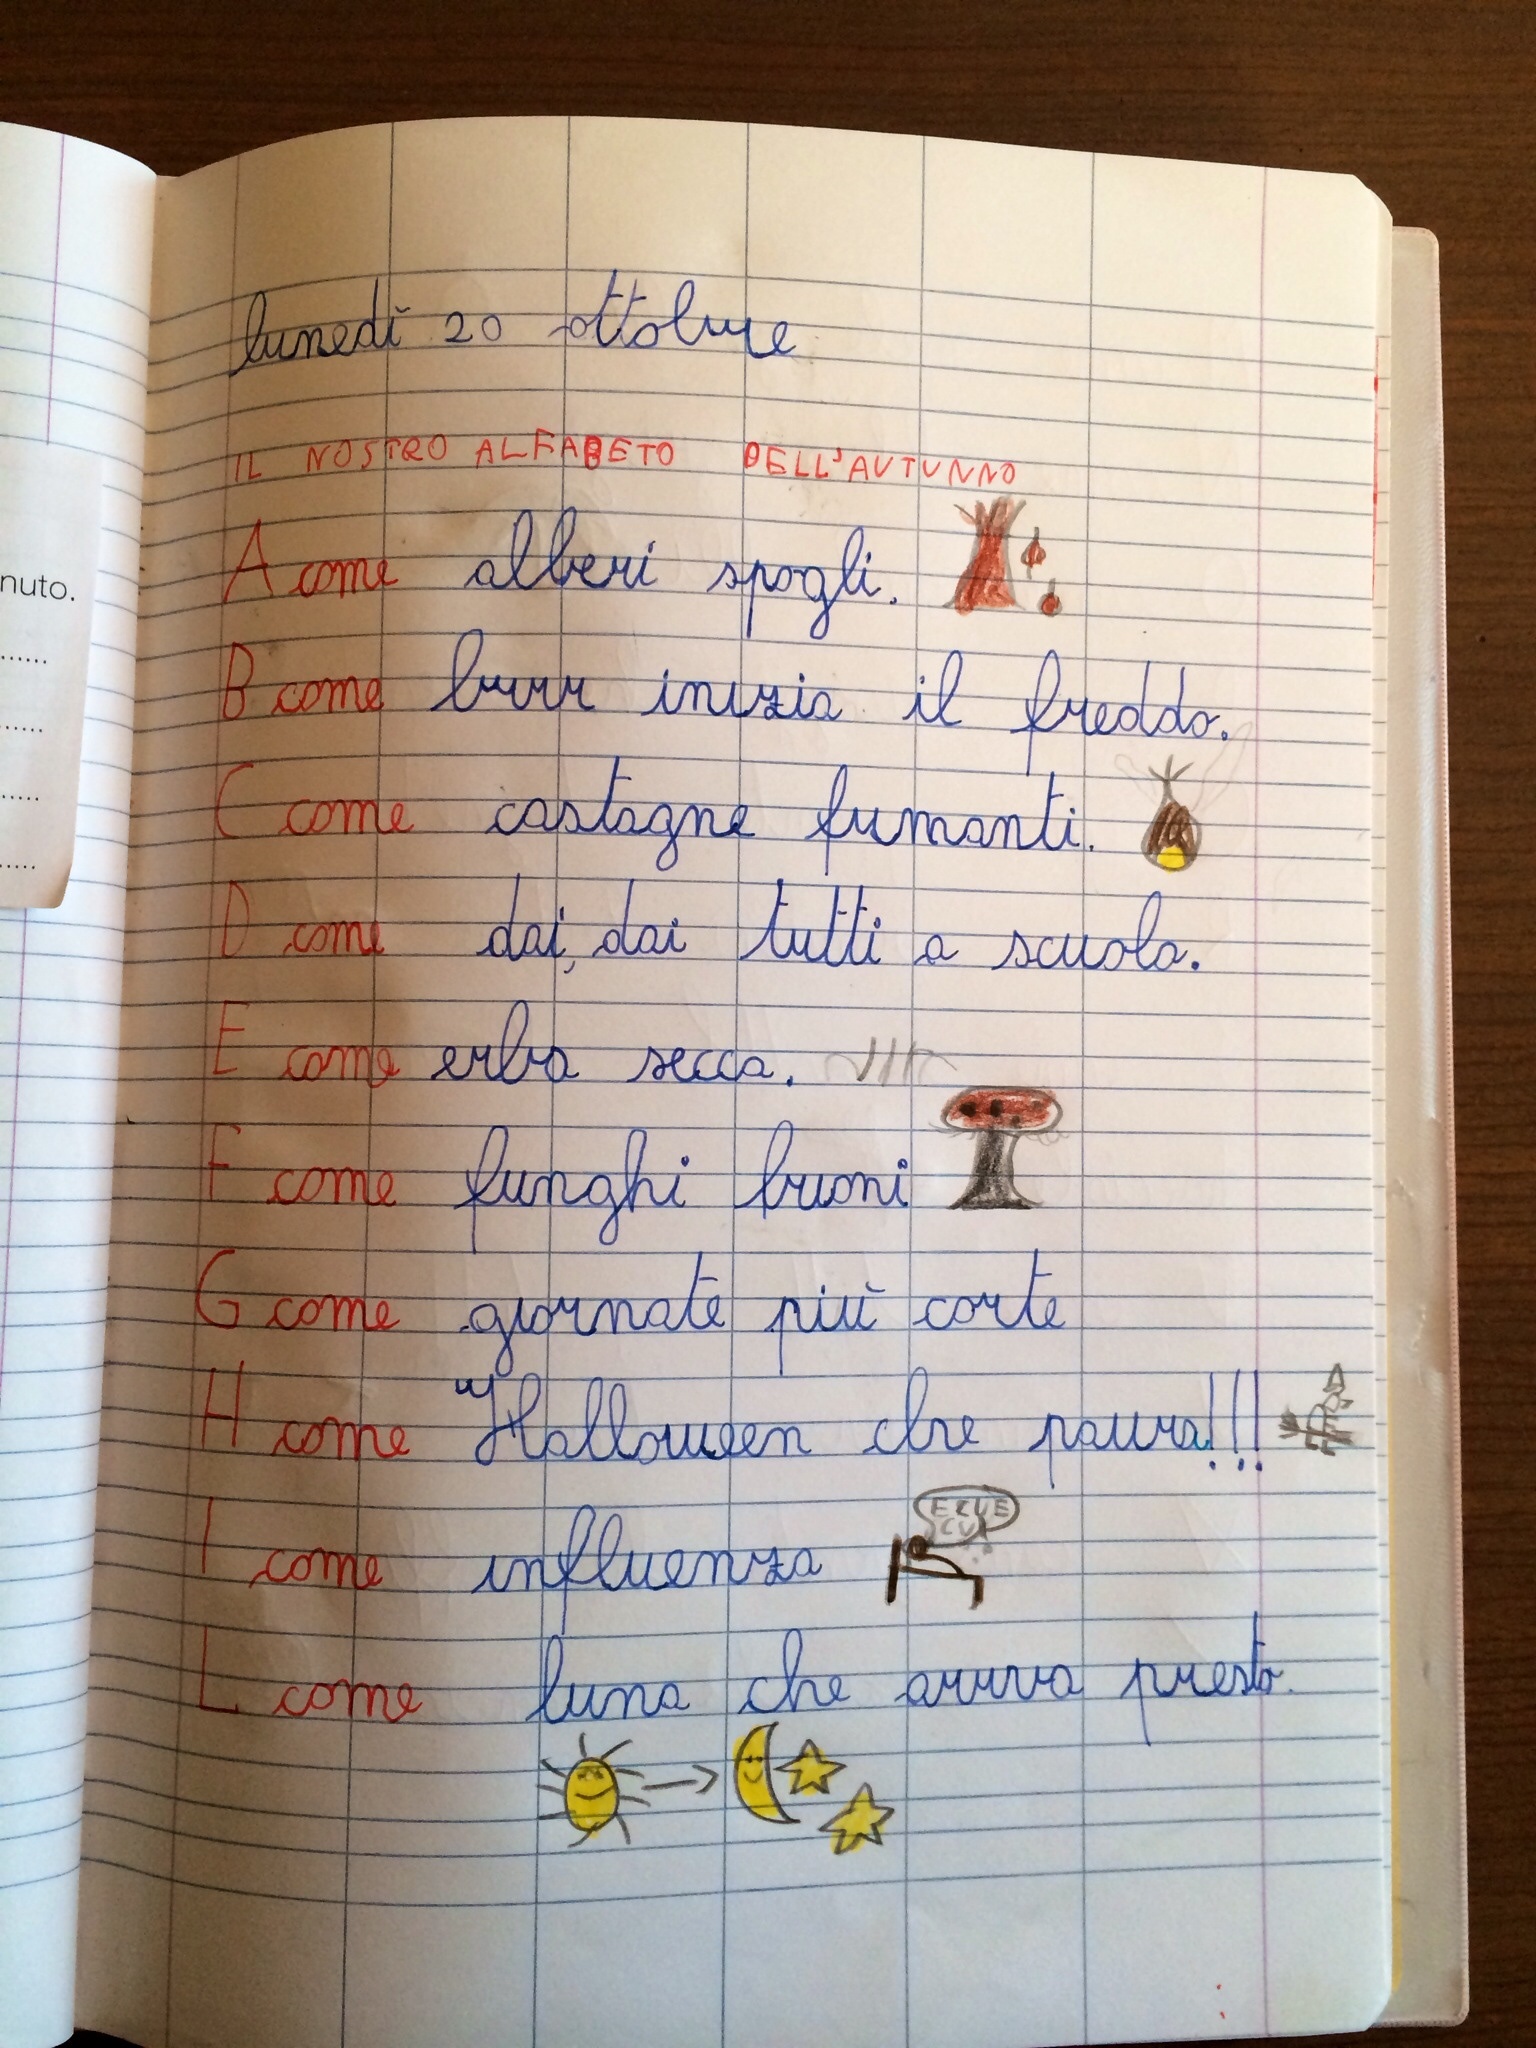 nuto.
lunedì 20 ottobre
IL NOSTRO ALFABETO DELL'AUTUNNO
A come alberi spogli.
B come brrr inizia il freddo.
C come castagne fumanti.
D come dai, dai tutti a scuola.
E come erba secca.
F come funghi buoni
G come giornate più corte
H come Halloween che paura!!!
I come influenza
L come luna che arriva presto.